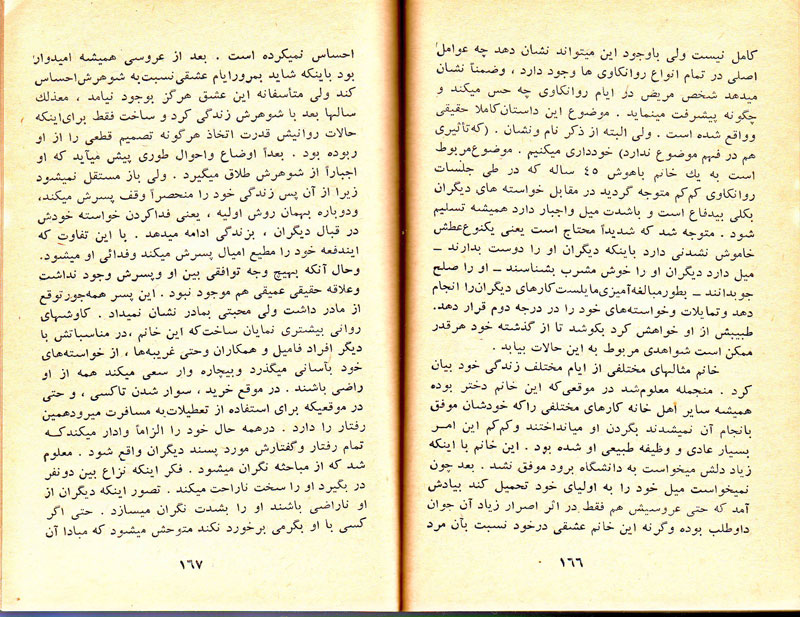 کامل نیست ولی باوجود این میتواند نشان دهد چه عوامل
اصلی در تمام انواع روانکاوی ها وجود دارد ، وضمناً نشان
میدهد شخص مریض در ایام روانکاوی چه حس میکند و
چگونه پیشرفت مینماید . موضوع این داستان کاملا حقیقی
وواقع شده است . ولی البته از ذکر نام ونشان . (که تأثیری
هم در فهم موضوع ندارد) خودداری میکنیم . موضوع مربوط
است به یك خانم باهوش ٤٥ ساله که در طی جلسات
روانکاوی کم کم متوجه گردید در مقابل خواسته های دیگران
بکلی بیدفاع است و باشدت میل واجبار دارد همیشه تسلیم
شود . متوجه شد که شدیداً محتاج است یعنی یکنوع عطش
خاموش نشدنی دارد باینکه دیگران او را دوست بدارند ــ
میل دارد دیگران او را خوش مشرب بشناسند ــ او را صلح
جو بدانند ــ بطور مبالغه آمیزی مایلست کارهای دیگران را انجام
دهد وتمایلات وخواسته‌های خود را در درجه دوم قرار دهد.
طبیبش از او خواهش کرد بکوشد تا از گذشته خود هرقدر
ممکن است شواهدی مربوط به این حالات بیابد .
خانم مثالهای مختلفی از ایام مختلف زندگی خود بیان
کرد . منجمله معلوم شد در موقعی که این خانم دختر بوده
همیشه سایر اهل خانه کارهای مختلفی را که خودشان موفق
بانجام آن نمیشدند بگردن او میانداختند وکم کم این امر
بسیار عادی و وظیفه طبیعی او شده بود . این خانم با اینکه
زیاد دلش میخواست به دانشگاه برود موفق نشد . بعد چون
نمیخواست میل خود را به اولیای خود تحمیل کند بیادش
آمد که حتی عروسیش هم فقط در اثر اصرار زیاد آن جوان
داوطلب بوده وگرنه این خانم عشقی درخود نسبت بآن مرد
١٦٦
احساس نمیکرده است . بعد از عروسی همیشه امیدوار
بود باینکه شاید بمرور ایام عشقی نسبت به شوهرش احساس
کند ولی متأسفانه این عشق هرگز بوجود نیامد ، معذلك
سالها بعد با شوهرش زندگی کرد و ساخت فقط برای اینکه
حالات روانیش قدرت اتخاذ هرگونه تصمیم قطعی را از او
ربوده بود . بعداً اوضاع واحوال طوری پیش میآید که او
اجباراً از شوهرش طلاق میگیرد . ولی باز مستقل نمیشود
زیرا از آن پس زندگی خود را منحصراً وقف پسرش میکند،
ودوباره بهمان روش اولیه ، یعنی فداکردن خواسته خودش
در قبال دیگران ، بزندگی ادامه میدهد . با این تفاوت که
ایندفعه خود را مطیع امیال پسرش میکند وفدائی او میشود.
وحال آنکه بهیچ وجه توافقی بین او وپسرش وجود نداشت
وعلاقه حقیقی عمیقی هم موجود نبود . این پسر همه جور توقع
از مادر داشت ولی محبتی بمادر نشان نمیداد . کاوشهای
روانی بیشتری نمایان ساخت که این خانم ،در مناسباتش با
دیگر افراد فامیل و همکاران وحتی غریبه‌ها ، از خواسته‌های
خود بآسانی میگذرد وبیچاره وار سعی میکند همه از او
راضی باشند . در موقع خرید ، سوار شدن تاکسی ، و حتی
در موقعیکه برای استفاده از تعطیلات به مسافرت میرود همین
رفتار را دارد . درهمه حال خود را الزاماً وادار میکند که
تمام رفتار وگفتارش مورد پسند دیگران واقع شود . معلوم
شد که از مباحثه نگران میشود . فکر اینکه نزاع بین دونفر
در بگیرد او را سخت ناراحت میکند . تصور اینکه دیگران از
او ناراضی باشند او را بشدت نگران میسازد . حتی اگر
کسی با او بگرمی برخورد نکند متوحش میشود که مبادا آن
١٦٧